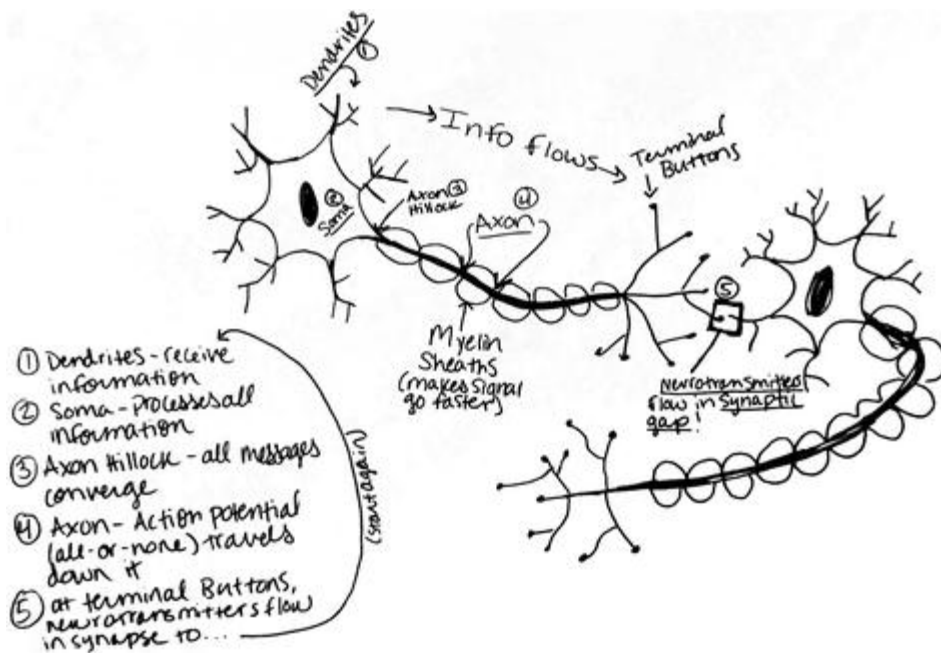 Dendrites
①
Info flows
Terminal
Buttons
②
Soma
Axon ③
Hillock
④
Axon
⑤
Myelin
Sheaths
(makes signal
go faster)
Neurotransmitters
flow in synaptic
gap!
① Dendrites - receive
information
② Soma - Processes all
information
③ Axon Hillock - all messages
converge
④ Axon - Action potential
(all-or-none) travels
down it
⑤ at terminal Buttons,
neurotransmitters flow
in synapse to...
(start again)